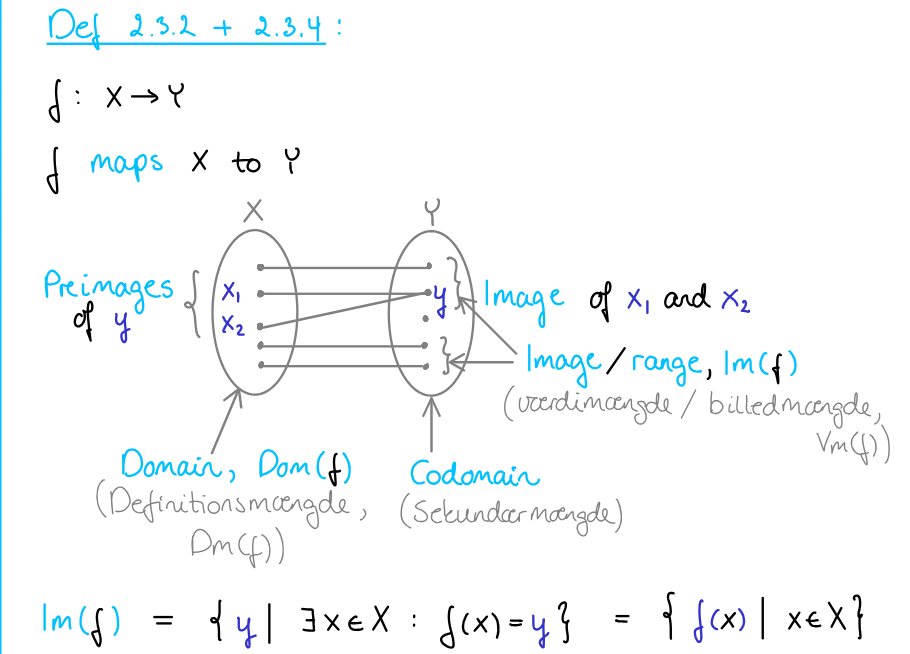 Def 2.3.2 + 2.3.4:
f: X → Y
f maps X to Y
X Y
Preimages of y
x₁
x₂
y
Image of x₁ and x₂
Image / range, Im(f)
(værdimængde / billedmængde, Vm(f))
Domain, Dom(f)
(Definitionsmængde, Dm(f))
Codomain
(Sekundærmængde)
Im(f) = { y | ∃ x ∈ X : f(x) = y } = { f(x) | x ∈ X }